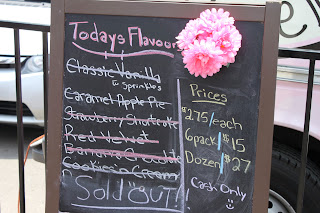 Todays Flavour
Classic Vanilla
w sprinkles
Caramel Apple Pie
Strawberry Shortcake
Red Velvet
Banana Chocolate
Cookies n Cream
Sold Out!!
Prices
$2.75/each
6pack $15
Dozen $27
Cash Only